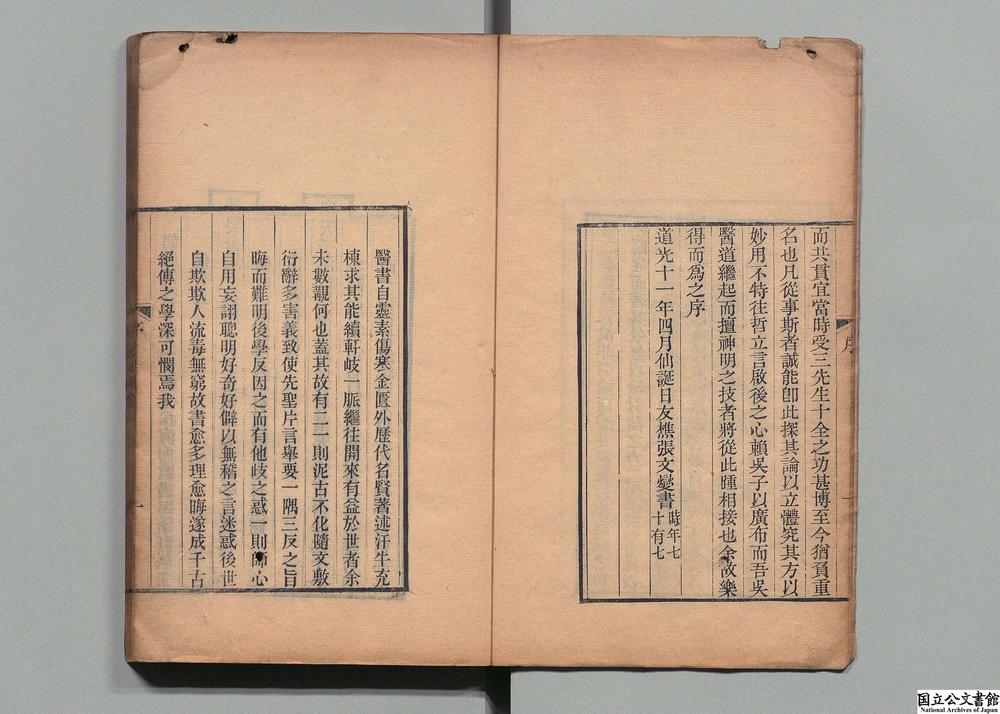 而共貫宜當時受三先生十全之功甚博至今猶負重
名也凡從事斯者誠能卽此探其論以立體究其方以
妙用不特往哲立言啟後之心賴吳子以廣布而吾吳
醫道繼起而擅神明之技者將從此踵相接也余故樂
得而爲之序
道光十一年四月仙誕日友樵張文燮書時年七
十有七
序
一
醫書自靈素傷寒金匱外歷代名賢著述汗牛充
棟求其能續軒岐一脈繼往開來有益於世者余
未數覯何也蓋其故有二一則泥古不化隨文敷
衍辭多害義致使先聖片言舉要一隅三反之旨
晦而難明後學反因之而有他歧之惑一則師心
自用妄詡聰明好奇好僻以無稽之言迷惑後世
自欺欺人流毒無窮故書愈多理愈晦遂成千古
絕傳之學深可憫焉我
序
一
国立公文書館
National Archives of Japan